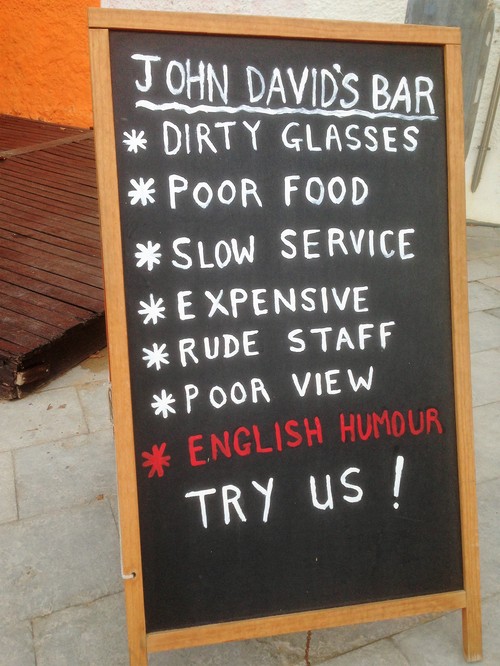 JOHN DAVID'S BAR
* DIRTY GLASSES
* POOR FOOD
* SLOW SERVICE
* EXPENSIVE
* RUDE STAFF
* POOR VIEW
* ENGLISH HUMOUR
TRY US !